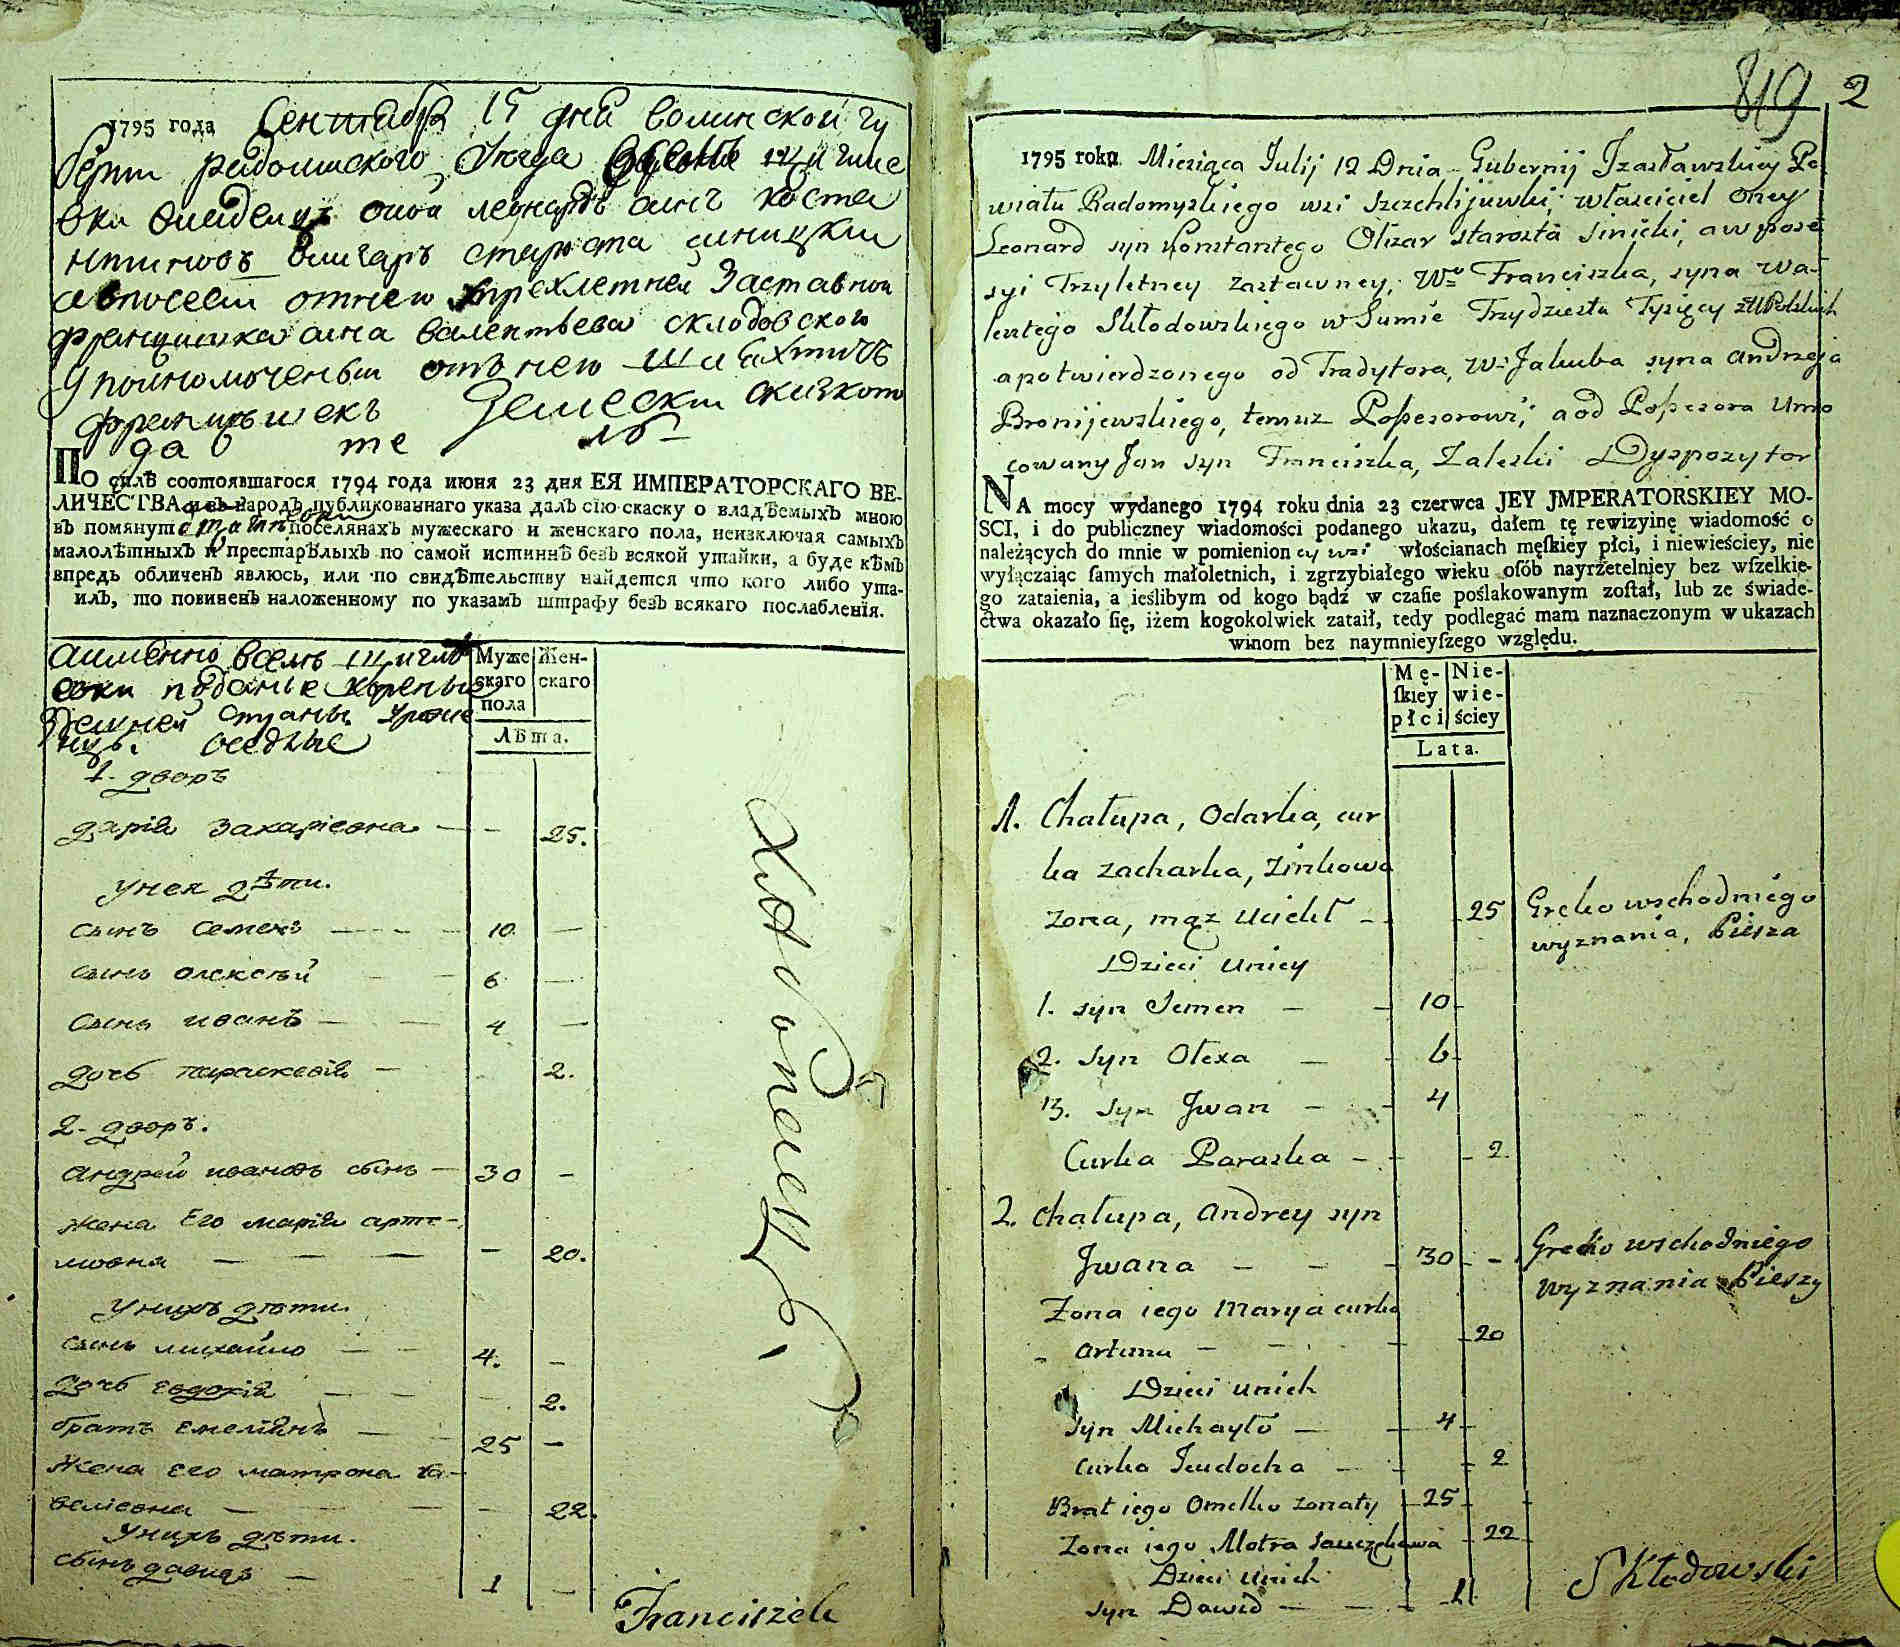 1795 года Сентября 15 дня волинской гу
берни радомшского
владелец оной леонардъ синъ коста
нтиновъ олизаръ староста синицкии
авпосесии отнего трехлетней Заставной
францишка сина валентьева склодовского
Уполномоченыи отъ него шляхтичъ
францышекъ Залескии скаского
да те ль
ПО силѣ состоявшагося 1794 года июня 23 дня ЕЯ ИМПЕРАТОРСКАГО ВЕ-
ЛИЧЕСТВА и въ народъ публикованнаго указа далъ сїю скаску о владѣемыхъ мною
въ помянут поселянахъ мужескаго и женскаго пола, неизключая самыхъ
малолѣтныхъ и престарѣлыхъ по самой истиннѣ безъ всякой утайки, а буде кѣмъ
впредь обличенъ явлюсь, или по свидѣтельству найдется что кого либо ута-
илъ, то повиненъ наложенному по указамъ штрафу безъ всякаго послабленїя.
аименно всемъ
здешней страны уроже
нцы. оседлые
Муже
скаго
пола
Жен-
скаго
Лѣта.
1. дворъ
дарїя захарїевна — — 25.
Унея дѣти.
сынъ семенъ — — 10 —
сынъ олексѣй — — 6 —
сынъ иванъ — — 4 —
дочь параскевїя — 2.
2. дворъ.
андрей ивановъ сынъ — 30 —
жена Его марїя арте-
мовна — — — — 20.
Унихъ дѣти.
сынъ михайло — — 4. —
дочь евдокїя — — — 2.
братъ емелїянъ — — 25 —
жена его матрона са-
велїевна — — — — 22.
Унихъ дѣти.
сынъ давидъ — — 1 —
Franciszek
819 2
1795 roku Miesiąca Julij 12 Dnia Gubernij Izasławskiey Po
wiatu Radomyslskiego wsi właściciel oney
Leonard syn Konstantego Olizar starosta Sinicki, a w posse
syi Trzyletney zastawney, Wo Franciszka, syna Wa-
lentego Skłodowskiego w Sumie Trzydziestu Tysięcy złł Polskich
a potwierdzonego od Tradytora, W Jakuba syna Andrzeja
Bronijewskiego, temuz Possesorowi, a od Possesora Umo
cowany Jan syn Franciszka, Zaleski Dyspozytor
NA mocy wydanego 1794 roku dnia 23 czerwca JEY JMPERATORSKIEY MO-
SCI, i do publiczney wiadomości podanego ukazu, dałem tę rewizyinę wiadomość o
należących do mnie w pomienion ey wsi włościanach męſkiey płci, i niewieściey, nie
wyłączaiąc ſamych małoletnich, i zgrzybiałego wieku oſób nayrzetelniey bez wſzelkie-
go zataienia, a ieślibym od kogo bądź w czaſie poślakowanym zoſtał, lub ze świade-
ctwa okazało ſię, iżem kogokolwiek zataił, tedy podlegać mam naznaczonym w ukazach
winom bez naymnieyſzego względu.
Mę-
ſkiey
płci
Nie-
wie-
ściey
Lata.
1. Chałupa, Odarka, cur
ka Zacharka, Zinkowa
zona, mąz uciekł — 25 Greko wschodniego
wyznania, Piesza
Dzieci Uniey
1. syn Semen — — 10
2. syn Olexa — — 6
3. syn Jwan — — 4
Curka Paraska — — 2
2. Chałupa, Andrey syn
Jwana — — — 30 — Greko wschodniego
wyznania Pieszy
Zona iego Marya curka
Artema — — — 20
Dzieci unich
syn Michayło — — 4
curka Jeudocha — — 2
Brat iego Omelko zonaty 25
Zona iego Motra 22
Dzieci unich
syn Dawid — — — 1
Skłodowski